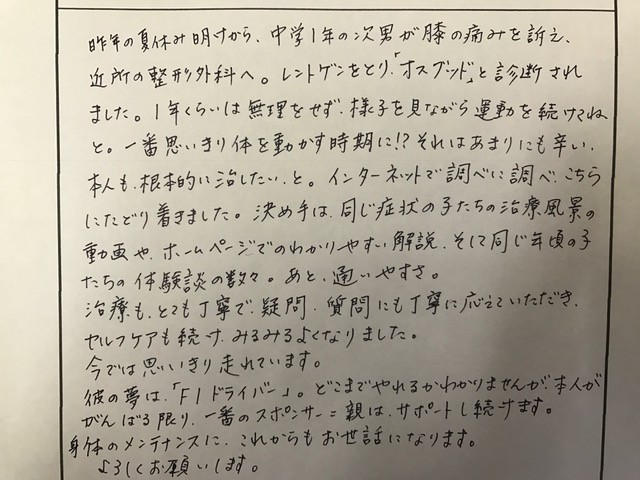 昨年の夏休み明けから、中学1年の次男が膝の痛みを訴え、
近所の整形外科へ。レントゲンをとり、「オスグッド」と診断され
ました。1年くらいは無理をせず、様子を見ながら運動を続けてね
と。一番思いきり体を動かす時期に!?それはあまりにも辛い、
本人も、根本的に治したい、と。インターネットで調べに調べ、こちら
にたどり着きました。決め手は、同じ症状の子たちの治療風景の
動画や、ホームページでのわかりやすい解説、そして同じ年頃の子
たちの体験談の数々。あと、通いやすさ。
治療も、とても丁寧で、疑問、質問にも丁寧に応えていただき、
セルフケアも続け、みるみるよくなりました。
今では思いいきり走れています。
彼の夢は、「F1ドライバー」。どこまでやれるかわかりませんが、本人が
がんばる限り、一番のスポンサー=親は、サポートし続けます。
身体のメンテナンスに、これからもお世話になります。
よろしくお願いします。